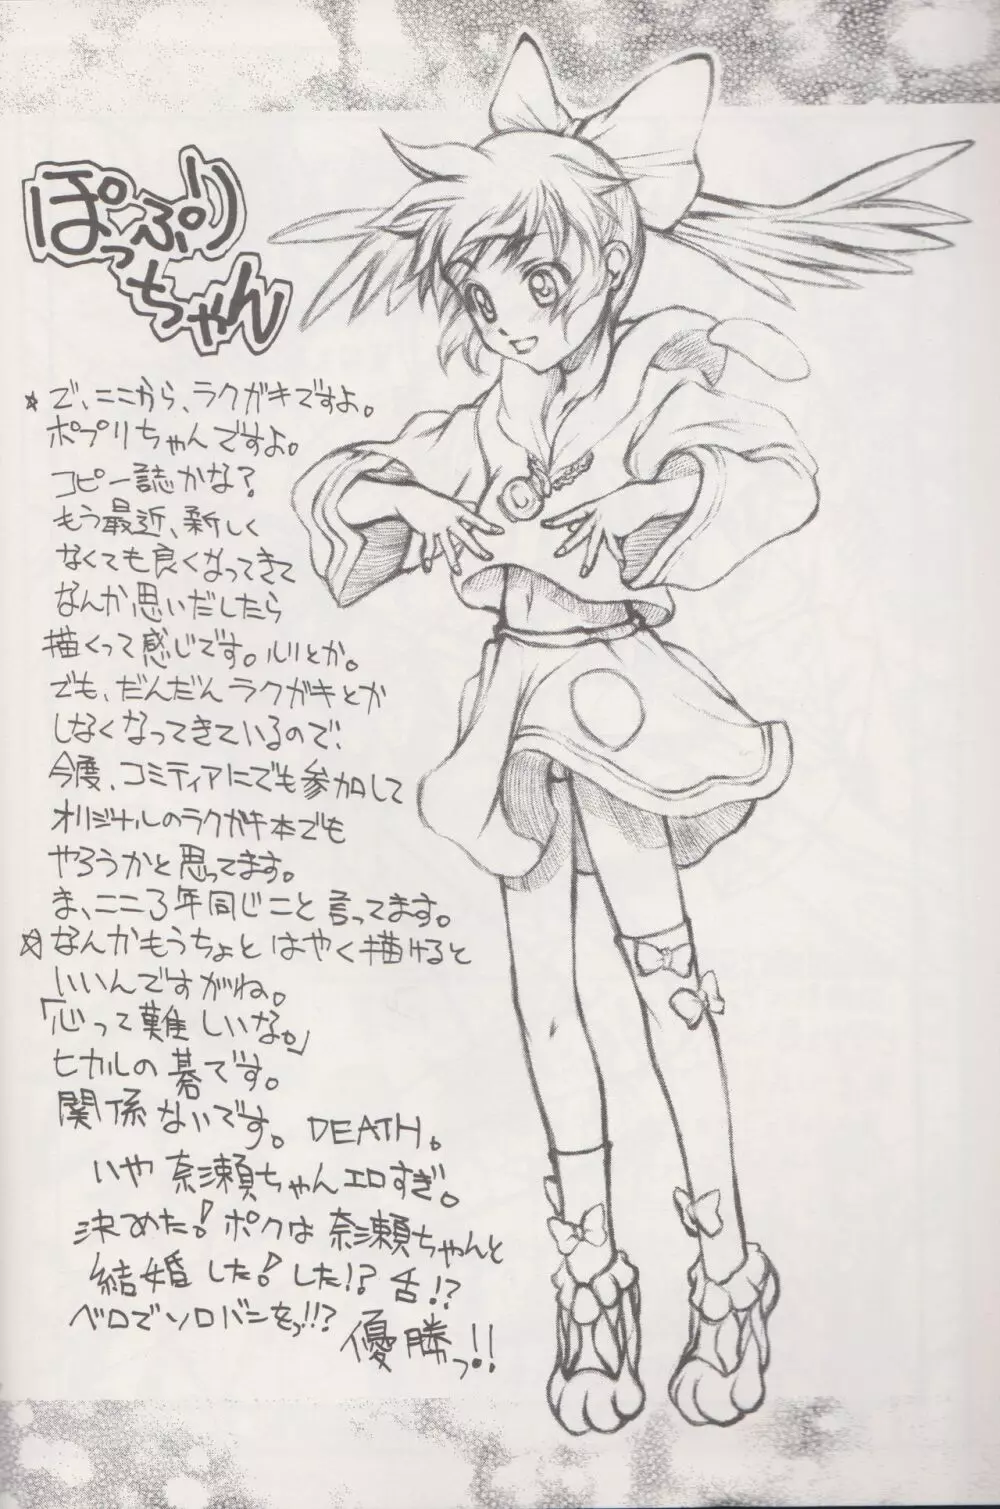 ぽぷり
っちゃん
☆で、ここから、ラクガキですよ。
ポプリちゃんですよ。
コピー誌かな?
もう最近、新しく
なくても良くなってきて
なんか思いだしたら
描くって感じです。ルリとか。
でも、だんだんラクガキとか
しなくなってきているので、
今度、コミティアにでも参加して
オリジナルのラクガキ本でも
やろうかと思ってます。
ま、ここ3年同じこと言ってます。
☆なんかもうちょとはやく描けると
いいんですがね。
「心って難しいな。」
ヒカルの碁です。
関係ないです。DEATH。
いや奈瀬ちゃんエロすぎ。
決めた!ボクは奈瀬ちゃんと
結婚した!した!?舌!?
ベロでソロバンをっ!!?
優勝っ!!